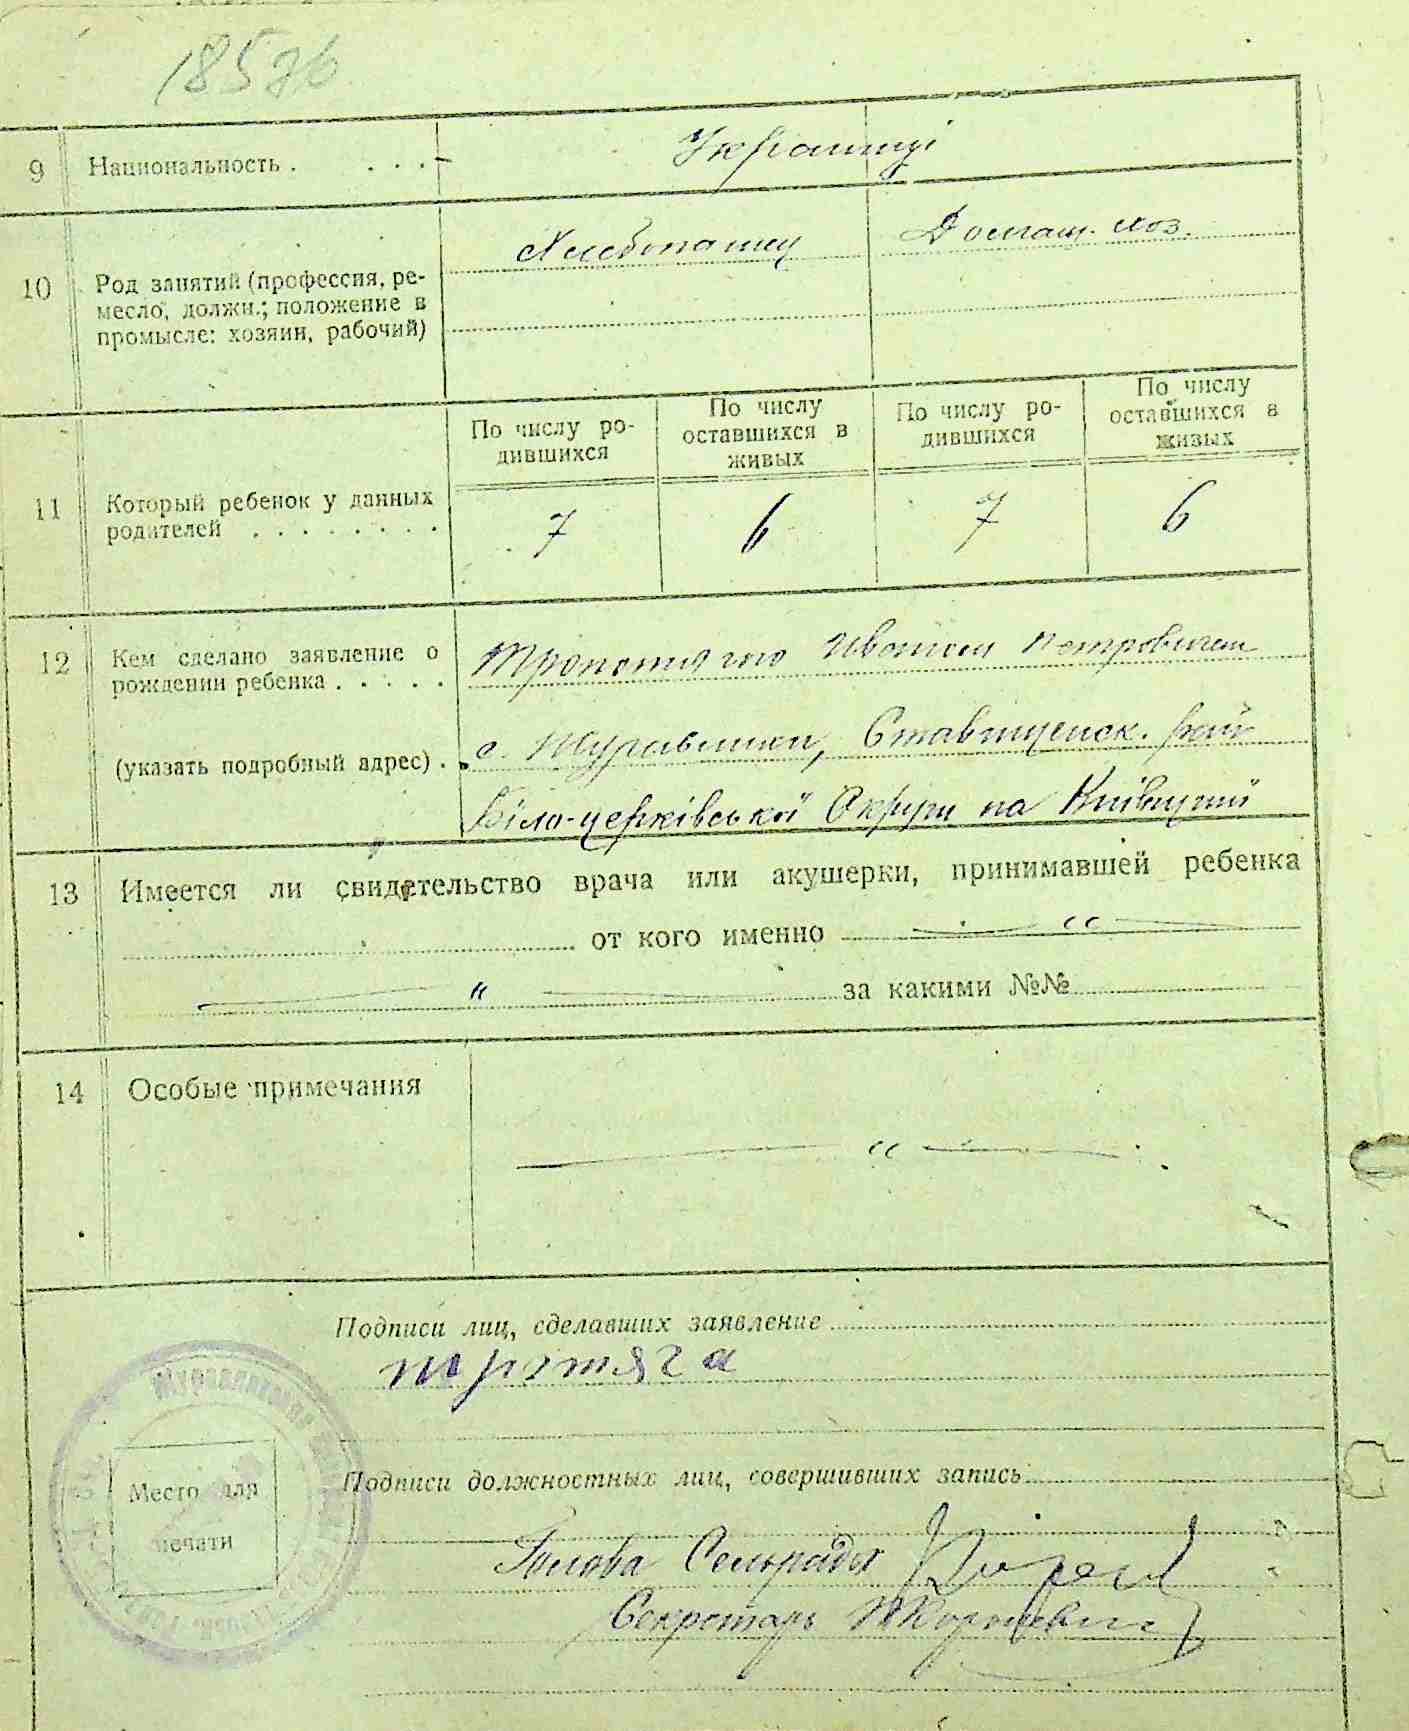 185 зв
9 Национальность . . . . Українці
10 Род занятий (профессия, ре-
месло, должн.; положение в
промысле: хозяин, рабочий)
Хлебопашец Домаш. хоз.
По числу ро-
дившихся
По числу
оставшихся в
живых
По числу ро-
дившихся
По числу
оставшихся в
живых
11 Который ребенок у данных
родителей . . . . . . . .
7 6 7 6
12 Кем сделано заявление о
рождении ребенка . . . . .
Иваном Петровичем
(указать подробный адрес) .
с. Журавлики, Ставищенск. рай
Біло-церківської Округи на Київщині
13 Имеется ли свидетельство врача или акушерки, принимавшей ребенка
от кого именно — " —
— " — за какими №№
14 Особые примечания
— " —
Подписи лиц, сделавших заявление
Подписи должностных лиц, совершивших запись
Место для
печати
Голова Сельради
Секретарь